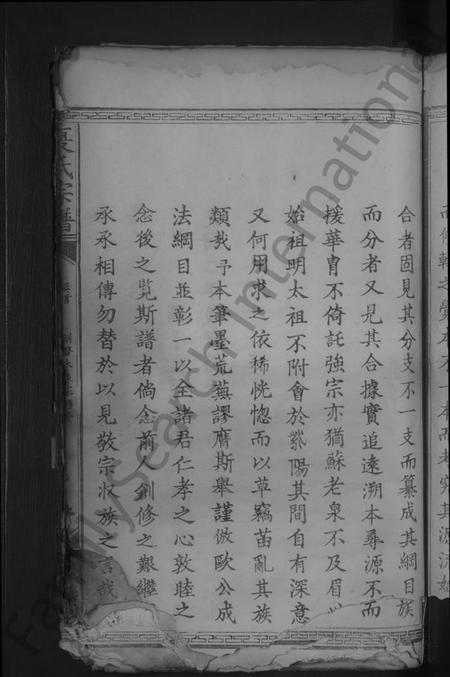 合者固見其分支不一支而纂成其綱目族
而分者又見其合據實追遠溯本尋源不而
援華胄不倚託強宗亦猶蘇老泉不及眉
始祖明太祖不附會於紫陽其間自有深意
又何用求之依稀恍惚而以草竊苗亂其族
類哉予本筆墨荒蕪謬膺斯舉謹倣歐公成
法綱目並彰一以全諸君仁孝之心敦睦之
念後之览斯譜者倘念前人創修之艱繼
承承相傳勿替於以見敬宗收族之言哉
氏宗譜
FamilySearch International